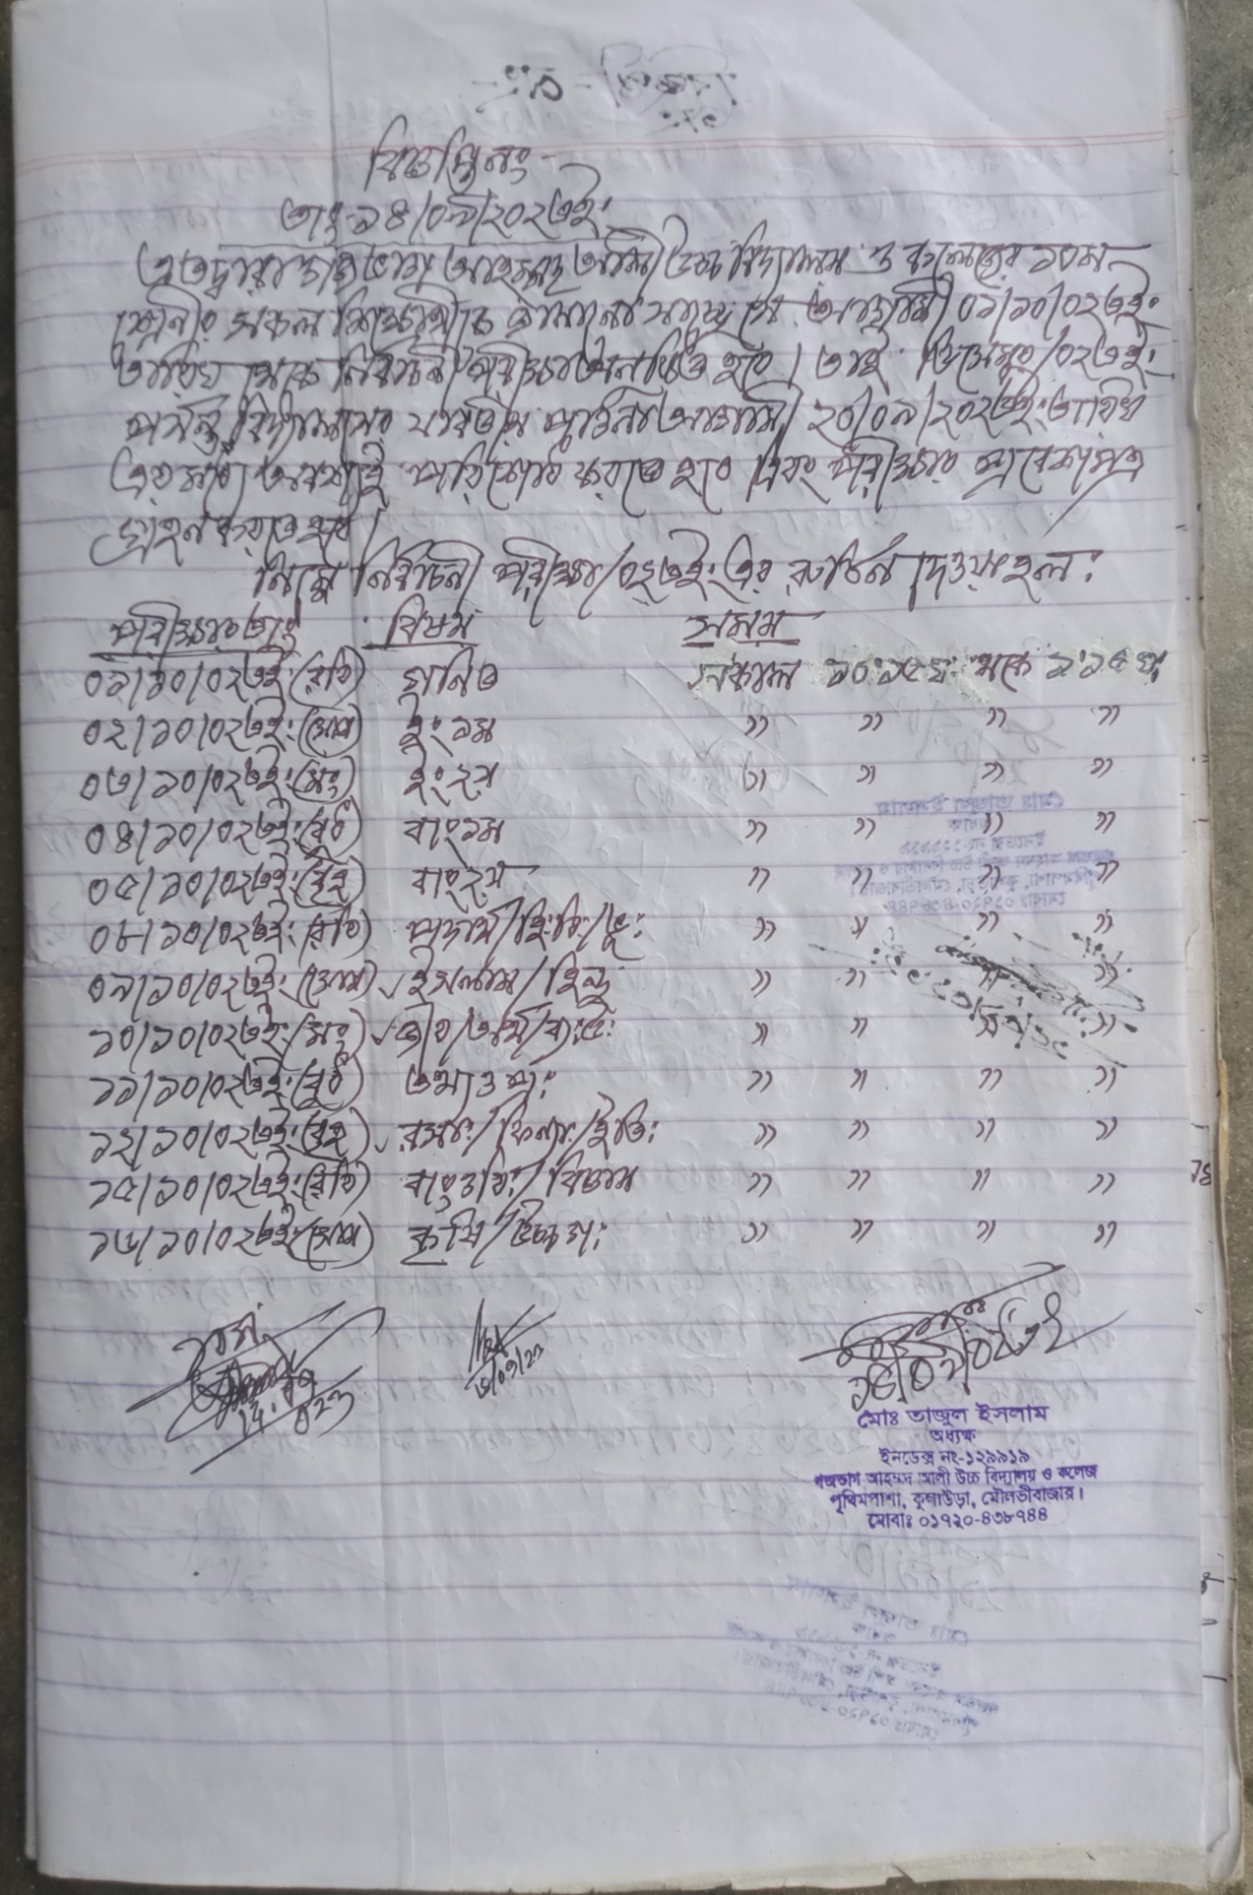 বিজ্ঞপ্তি নং-
তাং-১৪/০৯/২০২৩ইং
এতদ্বারা গজভাগ আহম্মদ আলী উচ্চ বিদ্যালয় ও কলেজের ১০ম
শ্রেণীর সকল শিক্ষার্থীকে জানানো যাচ্ছে যে আগামী ০১/১০/০২৩ইং
তারিখ থেকে নির্বাচনী পরীক্ষা অনুষ্ঠিত হবে। তাই ডিসেম্বর/০২৩ইং
পর্যন্ত বিদ্যালয়ের যাবতীয় পাওনা আগামী ২০/০৯/২০২৩ইং তারিখ
এর মধ্যে অবশ্যই পরিশোধ করতে হবে এবং পরীক্ষার প্রবেশপত্র
গ্রহন করতে হবে।
নিম্নে নির্বাচনী পরীক্ষা/০২৩ইং এর রুটিন দেওয়া হল:
পরীক্ষার তাং বিষয় সময়
০১/১০/০২৩ইং (রবি) গনিত সকাল ১০:১৫ঘ: থেকে ১:১৫ঘ:
০২/১০/০২৩ইং (সোম) ইং ১ম " " " "
০৩/১০/০২৩ইং (মং) ইং ২য় " " " "
০৪/১০/০২৩ইং (বুধ) বাং ১ম " " " "
০৫/১০/০২৩ইং (বৃহ) বাং ২য় " " " "
০৮/১০/০২৩ইং (রবি) পদার্থ/হি:বি:/ভূ: " " " "
০৯/১০/০২৩ইং (সোম) ইসলাম/হিন্দু " " " "
১০/১০/০২৩ইং (মং) জীব/অর্থ/ব্য:উ: " " " "
১১/১০/০২৩ইং (বুধ) তথ্য ও প্র: " " " "
১২/১০/০২৩ইং (বৃহ) রসা:/ফিন্যা:/ইতি: " " " "
১৫/১০/০২৩ইং (রবি) বাং ও বি:/বিজ্ঞান " " " "
১৬/১০/০২৩ইং (সোম) কৃষি/উচ্চ গ: " " " "
মোঃ তাজুল ইসলাম
অধ্যক্ষ
ইনডেক্স নং-১২৯৯১৯
গজভাগ আহম্মদ আলী উচ্চ বিদ্যালয় ও কলেজ
পৃথিমপাশা, কুলাউড়া, মৌলভীবাজার।
মোবাঃ ০১৭২০-৪৩৮৭৪৪